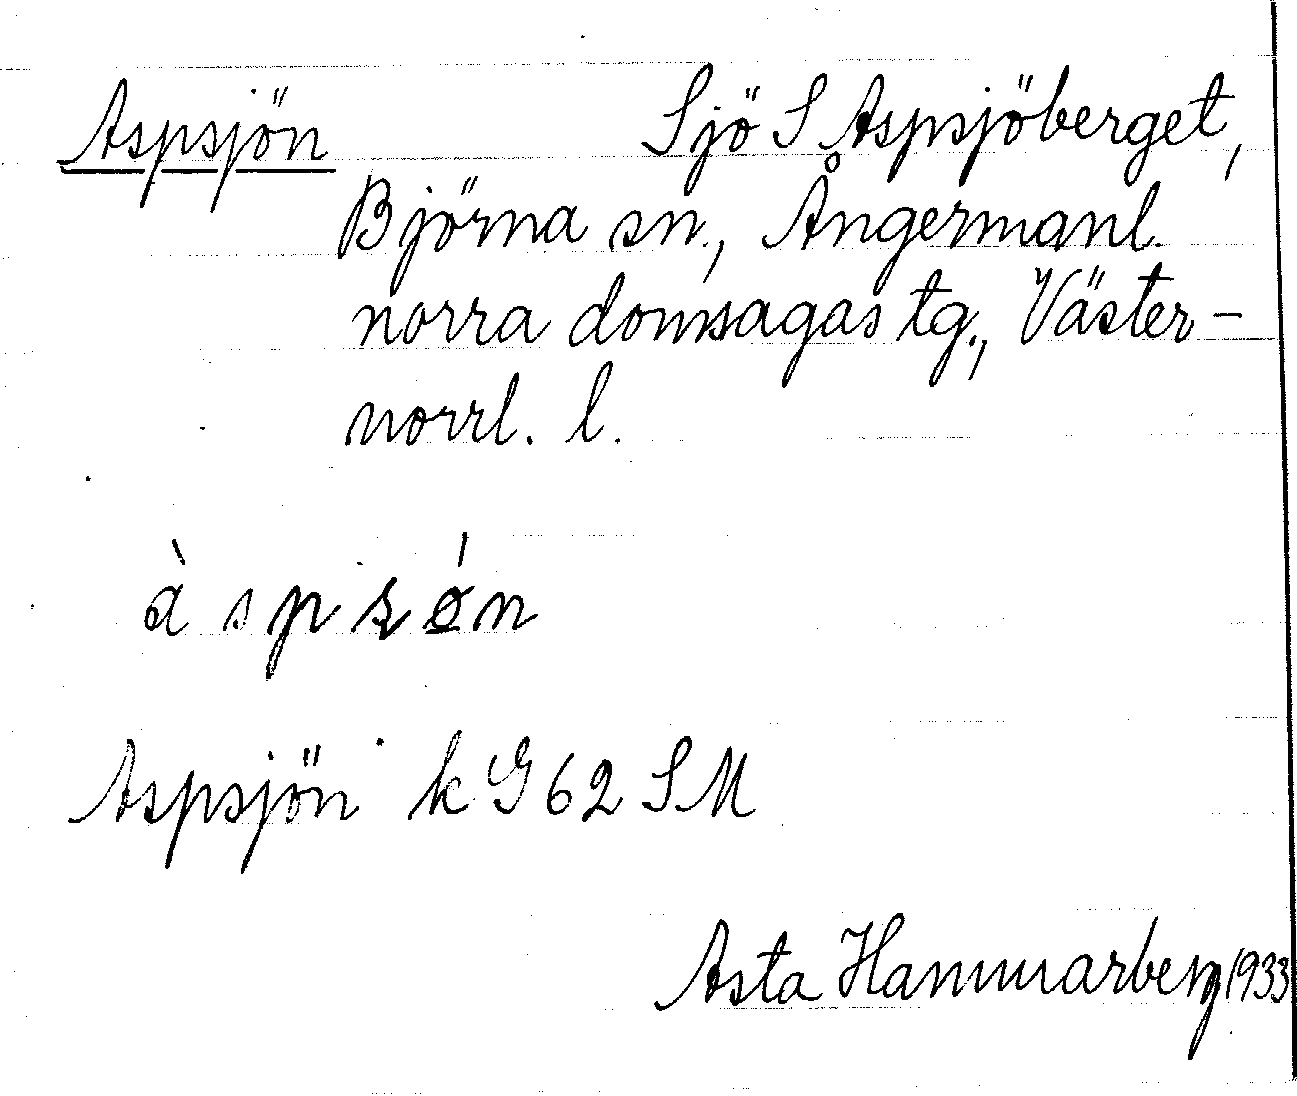 Aspsjön Sjö S Aspsjöberget,
Björna sn., Ångermanl.
norra domsagas tg., Väster-
norrl. l.
àspsǿn
Aspsjön k G 62 SM
Asta Hammarberg 1933